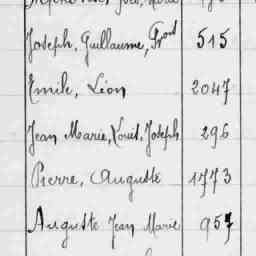 Joseph, Guillaume, Frost 515
Emile, Léon 2047
Jean Marie, Louis, Joseph 296
Pierre, Auguste 1773
Auguste Jean Marie 957